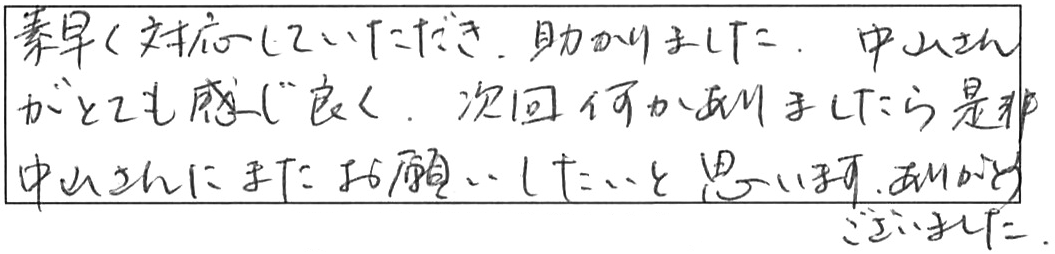 素早く対応していただき、助かりました。中山さん
がとても感じ良く、次回何かありましたら是非
中山さんにまたお願いしたいと思います。ありがとう
ございました。